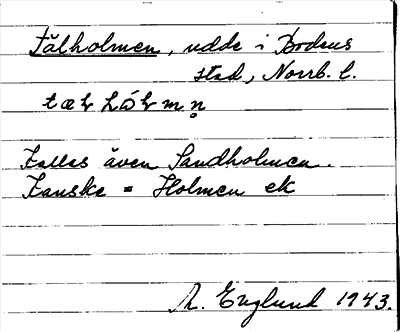 Tälholmen, udde i Bodens
stad, Norrb. l.
Kallas även Sandholmen.
Kanske = Holmen ek
M. Englund 1943.